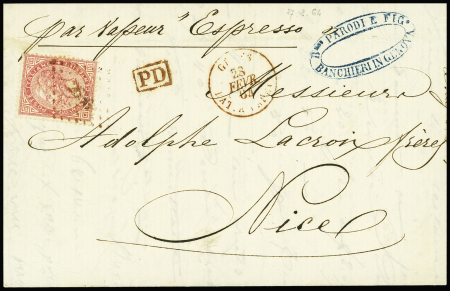 par vapeur "Espresso"
Bmo PARODI E FIG.
BANCHIERI IN GENOVA
PD
23
FEVR
64
Messieurs
Adolphe Lacroix frères
Nice